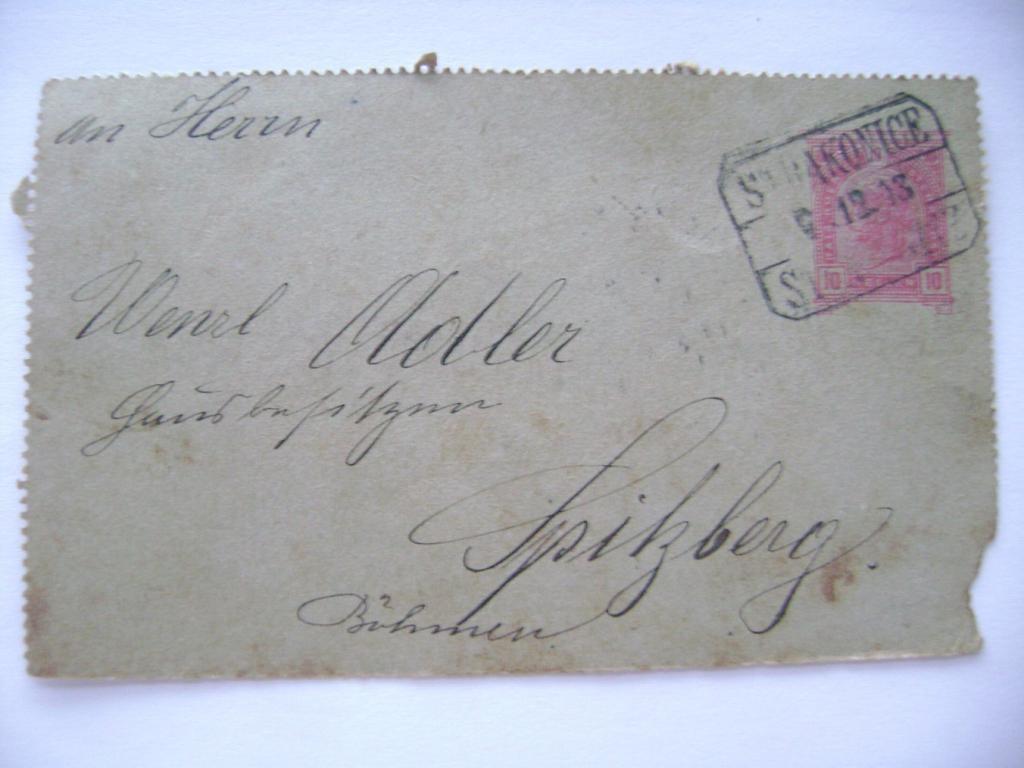 an Herrn
STRAKONICE
12 13
10 10
Wenzl Adler
Hausbesitzer
Spitzberg.
Böhmen